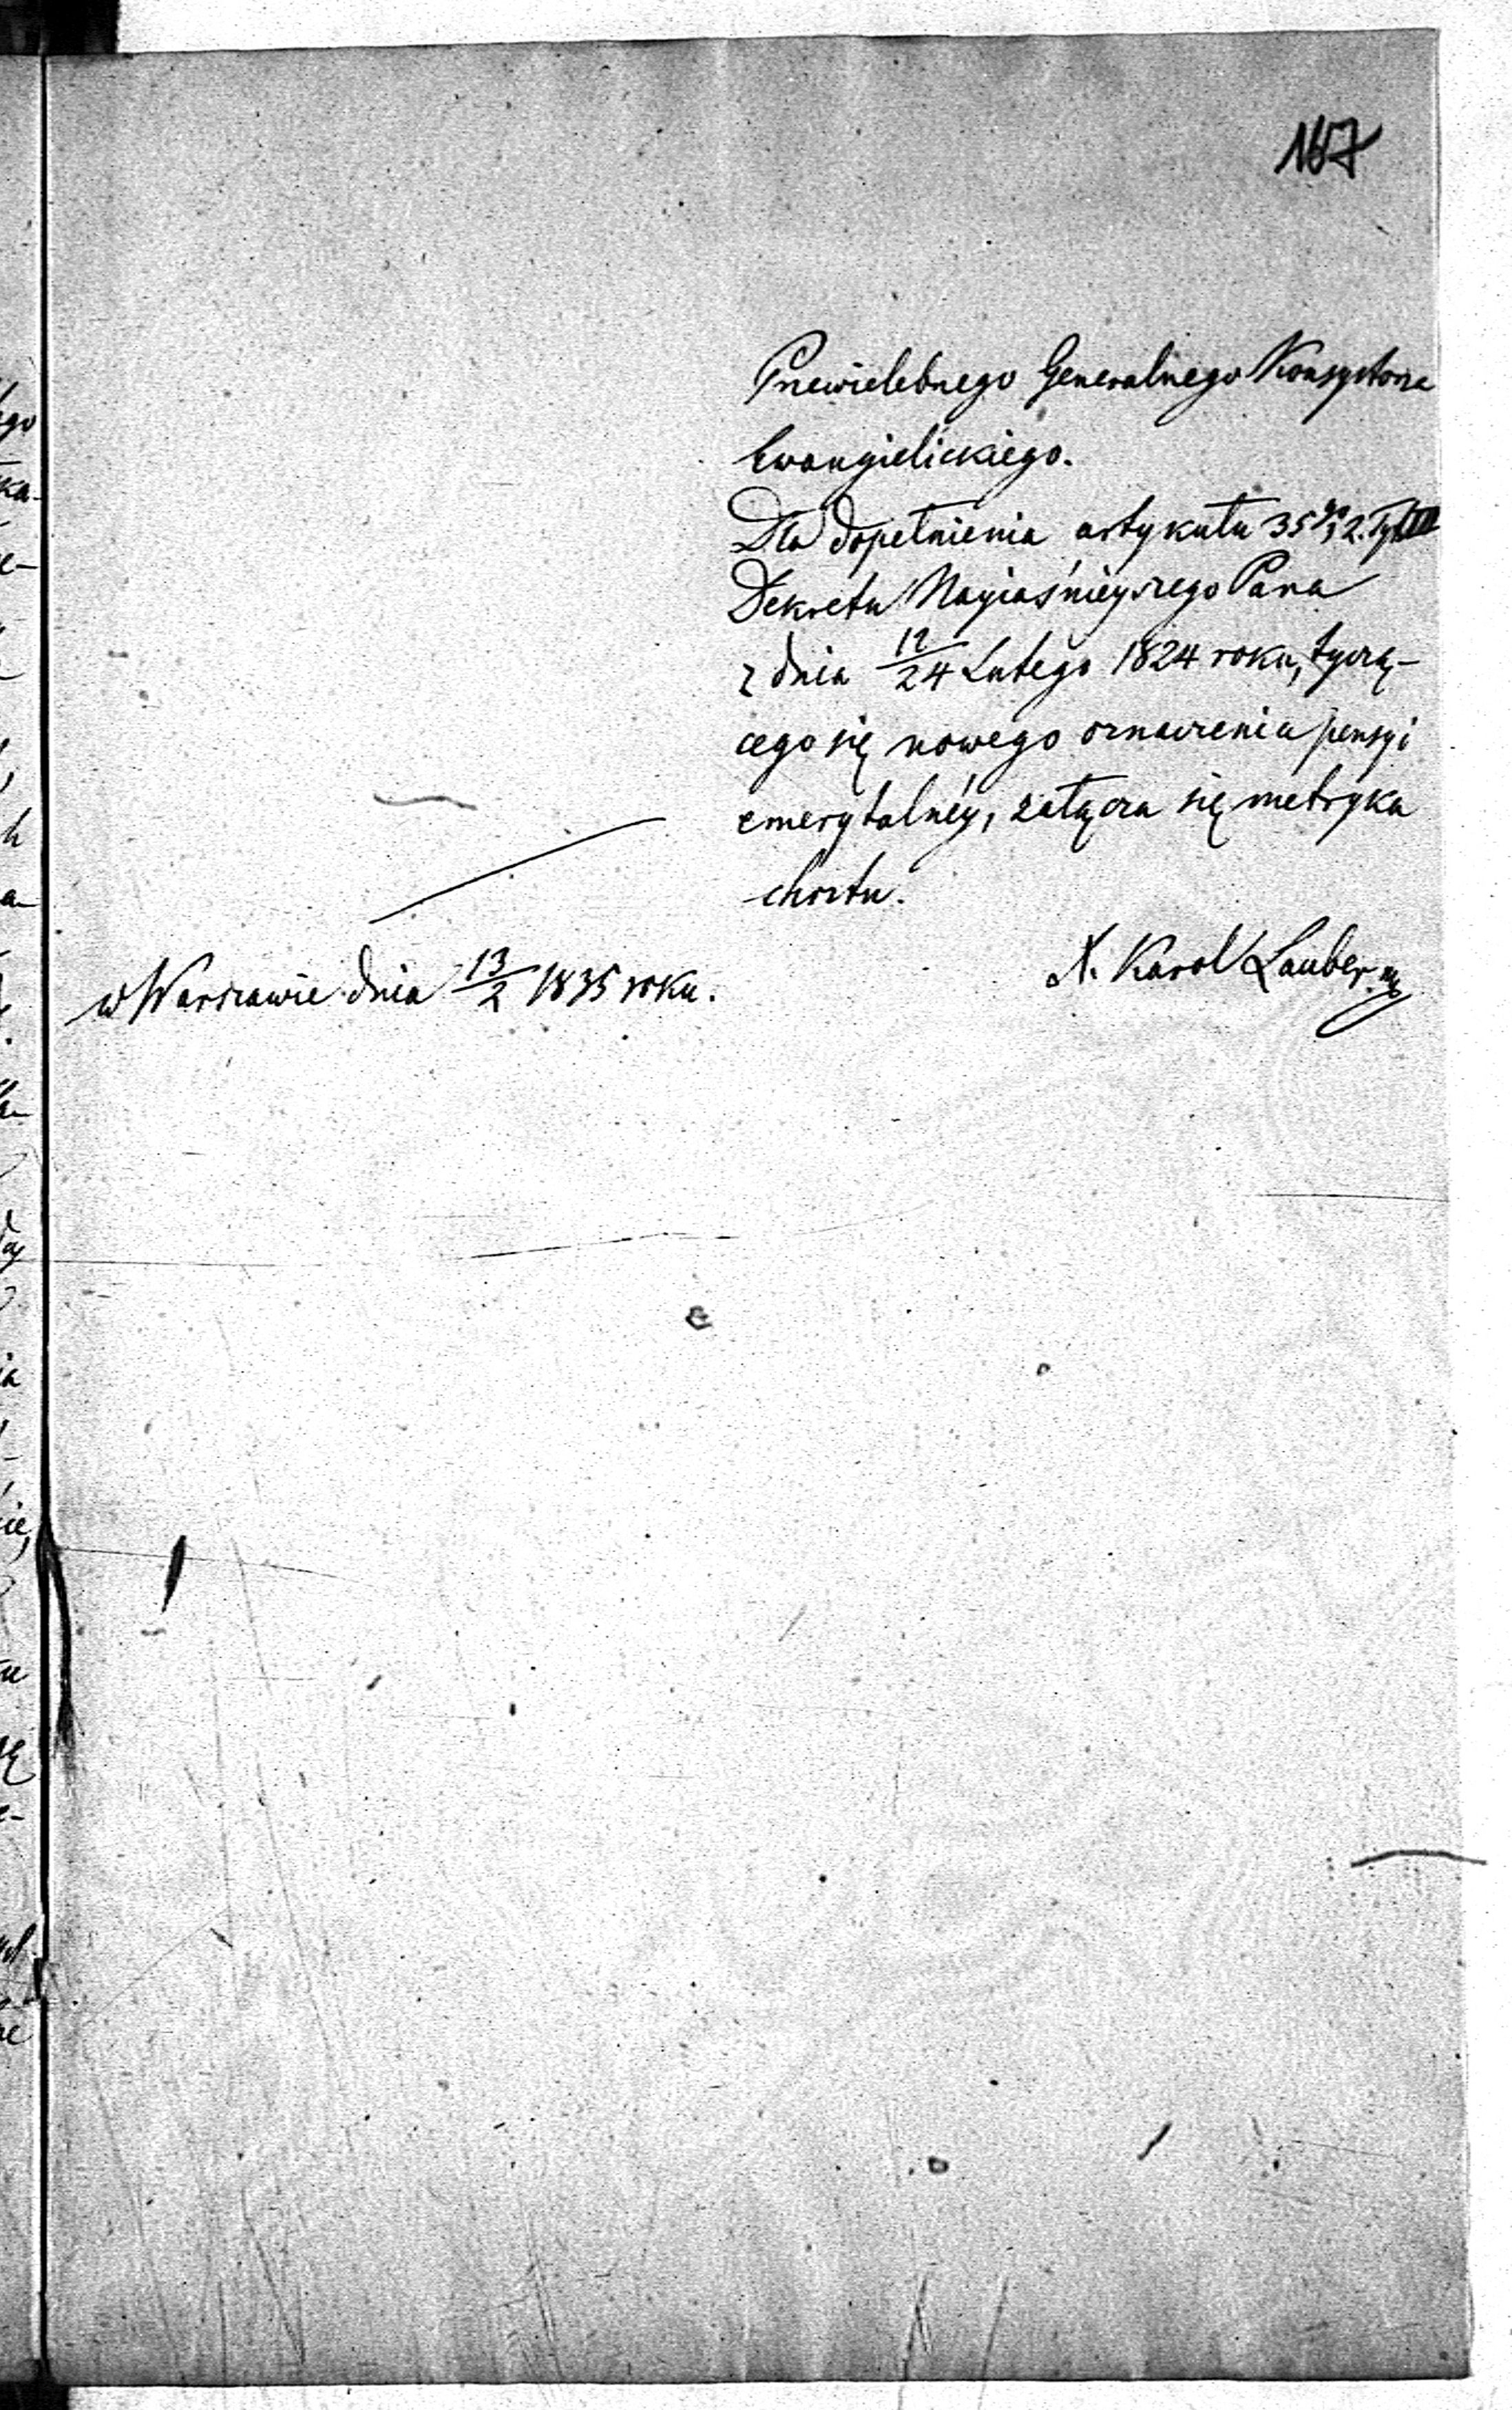 167
Przewielebnego Generalnego Konsystorza
Ewangielickiego.
Dla dopełnienia artykułu 35go, 2. Tyt.
Dekretu Nayiaśnieyszego Pana
z dnia 12/24 Lutego 1824 roku, tyczą-
cego się nowego oznaczenia pensyi
emerytalnéy, załącza się metryka
chrztu.
X. Karol Lauber. mp
w Warszawie dnia 13/2 1835 roku.